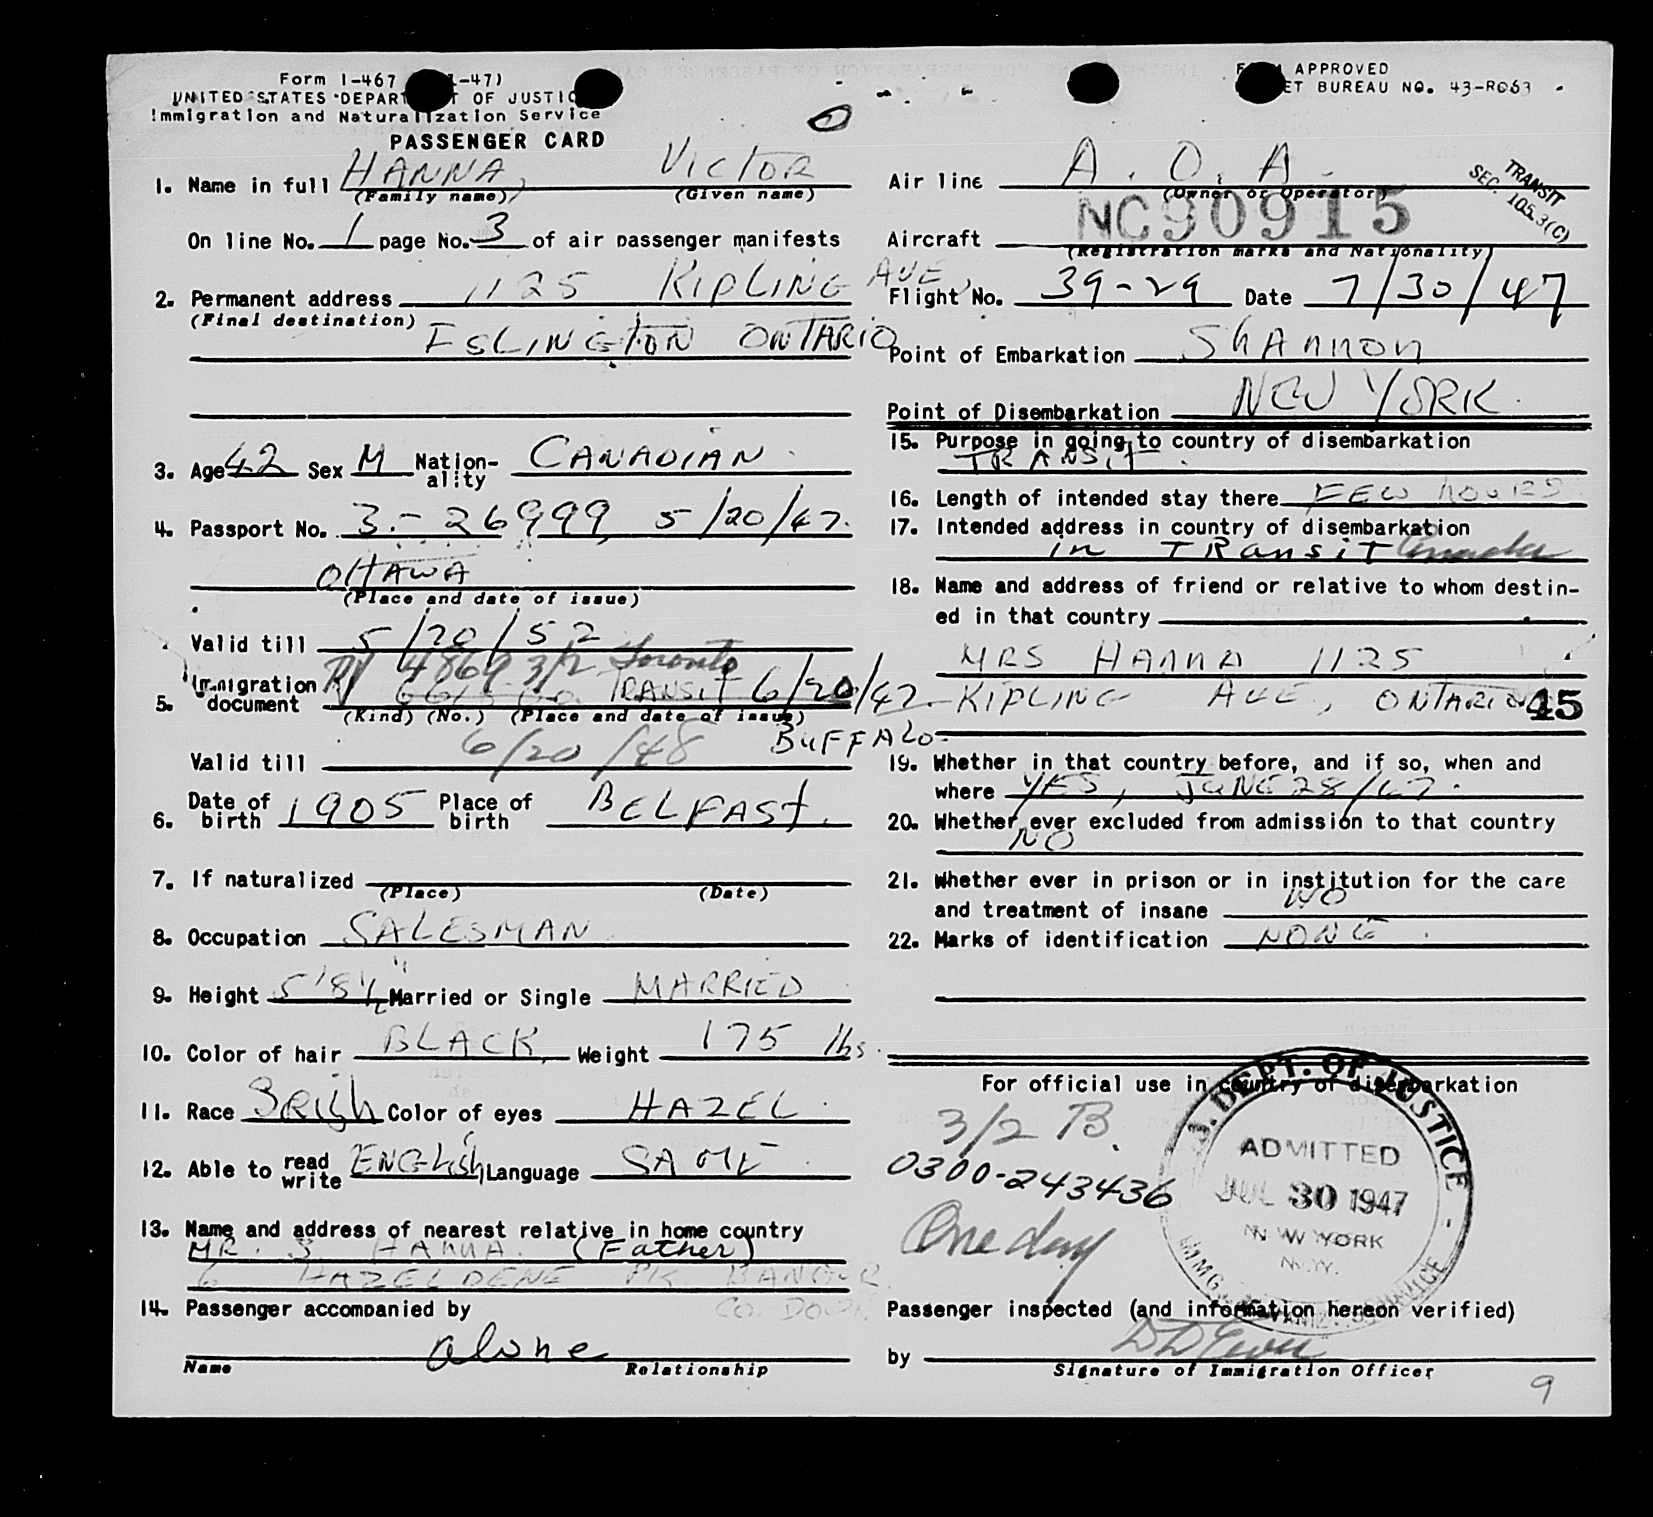 Form I-467 -47)
UNITED STATES DEPART T OF JUSTIC
Immigration and Naturalization Service
PASSENGER CARD
1. Name in full HANNA, VICTOR
(Family name) (Given name)
On line No. 1 page No. 3 of air passenger manifests
2. Permanent address 1125 KIPLING AVE,
(Final destination)
ISLINGTON ONTARIO
3. Age 42 Sex M Nation-ality CANADIAN
4. Passport No. 3-26999, 5/20/47.
OTTAWA
(Place and date of issue)
Valid till 5/20/52
RV 4869 3/2 Toronto
5. Immigration document TRANSIT 6/20/47
(Kind) (No.) (Place and date of issue)
BUFFALO
Valid till 6/20/48
6. Date of birth 1905 Place of birth BELFAST.
7. If naturalized
(Place) (Date)
8. Occupation SALESMAN
9. Height 5'8½" Married or Single MARRIED
10. Color of hair BLACK Weight 175 lbs
11. Race Color of eyes HAZEL
12. Able to read write ENGLISH, Language SAME
13. Name and address of nearest relative in home country
MR. S. HANNA. (Father)
6 HAZELDENE PK. BANGOR
CO. DOWN
14. Passenger accompanied by
alone
Name Relationship
F APPROVED
ET BUREAU NO. 43-R063
TRANSIT
SEC. 105.3(C)
Air line A.O.A.
(Owner or Operator)
Aircraft NC90915
(Registration marks and Nationality)
Flight No. 39-29 Date 7/30/47
Point of Embarkation SHANNON
Point of Disembarkation NEW YORK.
15. Purpose in going to country of disembarkation
TRANSIT
16. Length of intended stay there FEW HOURS
17. Intended address in country of disembarkation
in TRANSIT Canada
18. Name and address of friend or relative to whom destin-
ed in that country
MRS HANNA 1125
KIPLING AVE, ONTARIO 45
19. Whether in that country before, and if so, when and
where YES, JUNE 28/47.
20. Whether ever excluded from admission to that country
NO
21. Whether ever in prison or in institution for the care
and treatment of insane NO
22. Marks of identification NONE
For official use in country of disembarkation
3/2 B.
0300-243436
One day
U.S. DEPT. OF JUSTICE
ADMITTED
JUL 30 1947
NEW YORK
N.Y.
Passenger inspected (and information hereon verified)
by
Signature of Immigration Officer
9